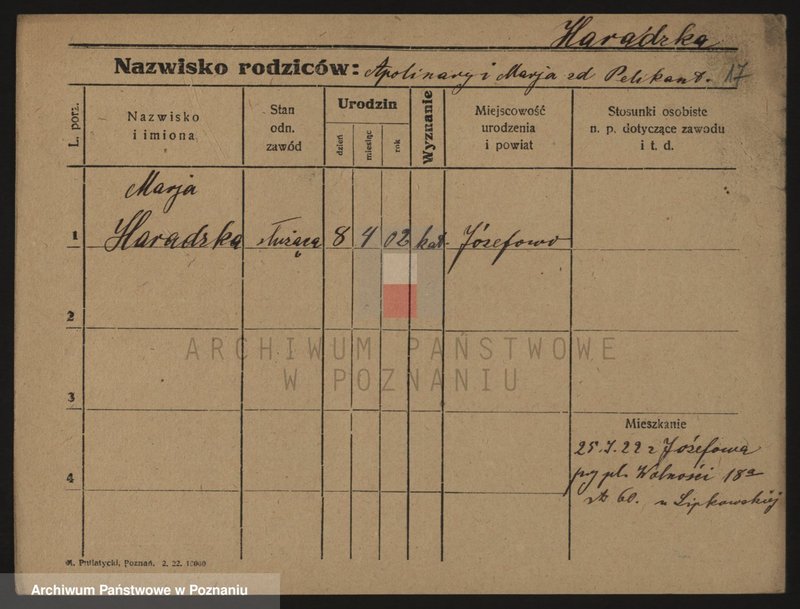 Haradzka
Nazwisko rodziców: Apolinary i Marja zd Pelikant. 17
L. porz.
Nazwisko i imiona
Stan odn. zawód
Urodzin
dzień
miesiąc
rok
Wyznanie
Miejscowość urodzenia i powiat
Stosunki osobiste n. p. dotyczące zawodu i t. d.
Marja
1 Haradzka służąca 8 4 02 kat. Józefowo
2
ARCHIWUM PAŃSTWOWE
W POZNANIU
3
Mieszkanie
25.I.22 z Józefowa
pl. Wolności 18a
4
60. u Lipkowskiej
M. Putiatycki, Poznań. 2. 22.
Archiwum Państwowe w Poznaniu